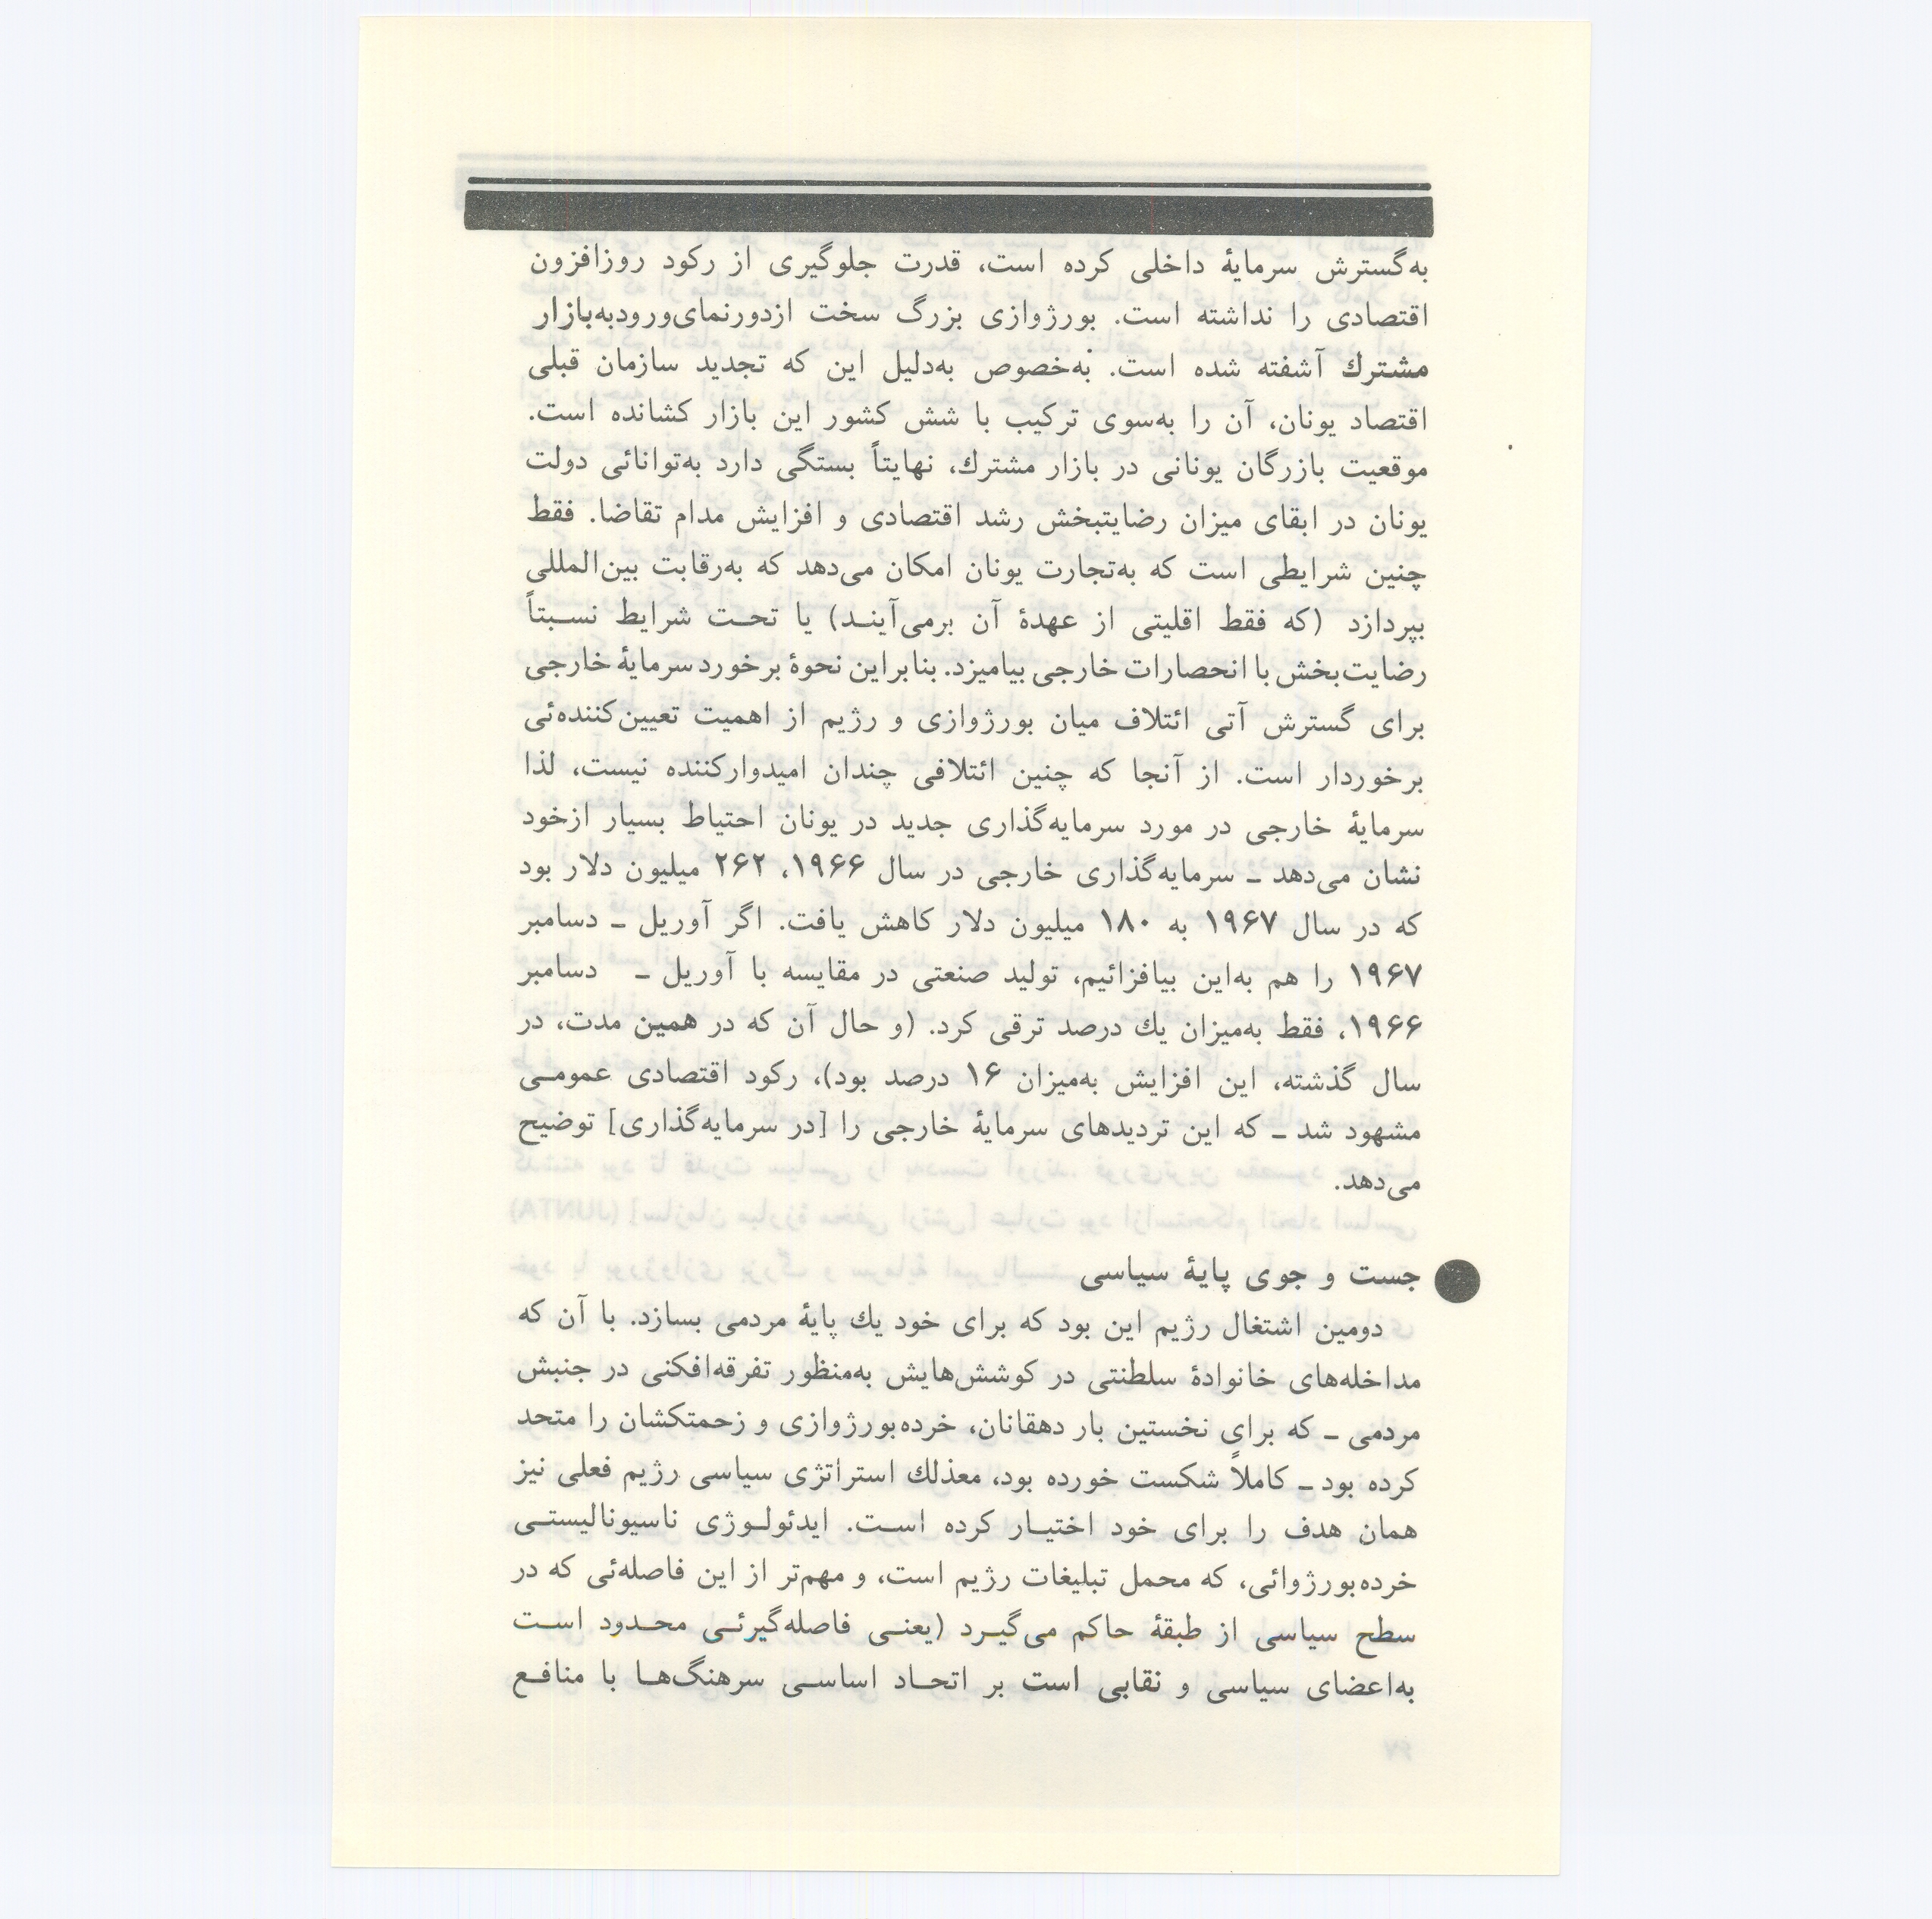 به‌گسترش سرمایهٔ داخلی کرده است، قدرت جلوگیری از رکود روزافزون
اقتصادی را نداشته است. بورژوازی بزرگ سخت ازدورنمای‌ورودبه‌بازار
مشترك آشفته شده است. به‌خصوص به‌دلیل این که تجدید سازمان قبلی
اقتصاد یونان، آن را به‌سوی ترکیب با شش کشور این بازار کشانده است.
موقعیت بازرگان یونانی در بازار مشترك، نهایتاً بستگی دارد به‌توانائی دولت
یونان در ابقای میزان رضایتبخش رشد اقتصادی و افزایش مدام تقاضا. فقط
چنین شرایطی است که به‌تجارت یونان امکان می‌دهد که به‌رقابت بین‌المللی
بپردازد (که فقط اقلیتی از عهدهٔ آن برمی‌آینـد) یا تحـت شرایط نسـبتاً
رضایت‌بخش با انحصارات خارجی بیامیزد. بنابراین نحوهٔ برخورد سرمایهٔ خارجی
برای گسترش آتی ائتلاف میان بورژوازی و رژیم از اهمیت تعیین‌کننده‌ئی
برخوردار است. از آنجا که چنین ائتلافی چندان امیدوارکننده نیست، لذا
سرمایهٔ خارجی در مورد سرمایه‌گذاری جدید در یونان احتیاط بسیار ازخود
نشان می‌دهد ـ سرمایه‌گذاری خارجی در سال ۱۹۶۶، ۲۶۲ میلیون دلار بود
که در سال ۱۹۶۷ به ۱۸۰ میلیون دلار کاهش یافت. اگر آوریل ـ دسامبر
۱۹۶۷ را هم به‌این بیافزائیم، تولید صنعتی در مقایسه با آوریل ـ دسامبر
۱۹۶۶، فقط به‌میزان یك درصد ترقی کرد. (و حال آن که در همین مدت، در
سال گذشته، این افزایش به‌میزان ۱۶ درصد بود)، رکود اقتصادی عمومـی
مشهود شد ـ که این تردیدهای سرمایهٔ خارجی را [در سرمایه‌گذاری] توضیح
می‌دهد.
جست و جوی پایهٔ سیاسی
دومین اشتغال رژیم این بود که برای خود یك پایهٔ مردمی بسازد. با آن که
مداخله‌های خانوادهٔ سلطنتی در کوشش‌هایش به‌منظور تفرقه‌افکنی در جنبش
مردمی ـ که برای نخستین بار دهقانان، خرده‌بورژوازی و زحمتکشان را متحد
کرده بود ـ کاملاً شکست خورده بود، معذلك استراتژی سیاسی رژیم فعلی نیز
همان هدف را برای خود اختیـار کرده اسـت. ایدئولـوژی ناسیونالیستـی
خرده‌بورژوائی، که محمل تبلیغات رژیم است، و مهم‌تر از این فاصله‌ئی که در
سطح سیاسی از طبقهٔ حاکم می‌گیـرد (یعنـی فاصله‌گیرئـی محـدود اسـت
به‌اعضای سیاسی و نقابی است بر اتحـاد اساسـی سرهنگ‌هـا با منافـع